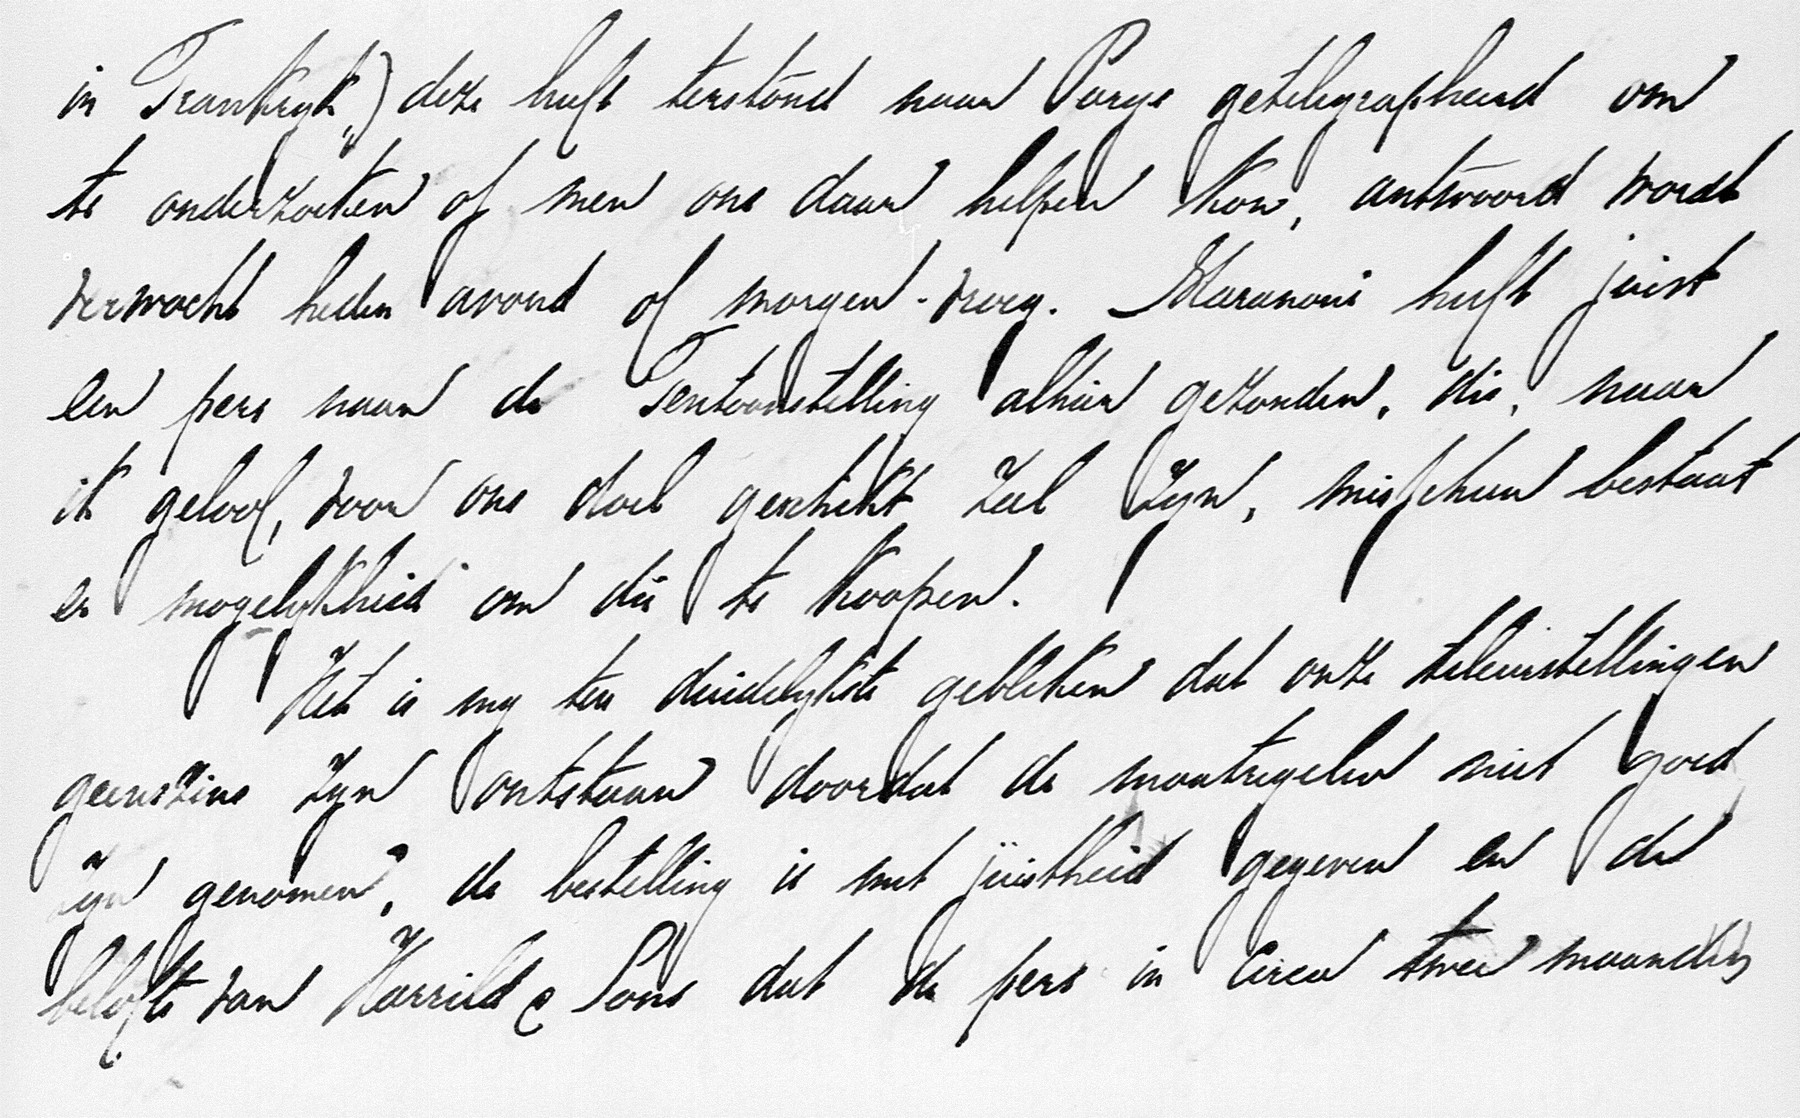 in Frankryk") deze heeft terstond naar Parys getelegrapheerd om
te onderzoeken of men ons daar helpen kon, antwoord wordt
verwacht heden avond of morgen-vroeg. Maranoni heeft juist
een pers naar de Tentoonstelling alhier gezonden, die, naar
ik geloof, voor ons doel geschikt zal zyn, misschien bestaat
er mogelykheid om die te koopen.
Het is my ten duidelykste gebleken dat onze teleurstellingen
geenszins zyn ontstaan doordat de maatregelen niet goed
zyn genomen, de bestelling is met juistheid gegeven en de
belofte van Harrild & Sons dat de pers in circa twee maanden